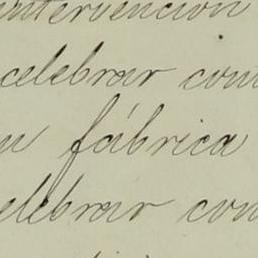 intervencion
celebrar con
fábrica
celebrar con